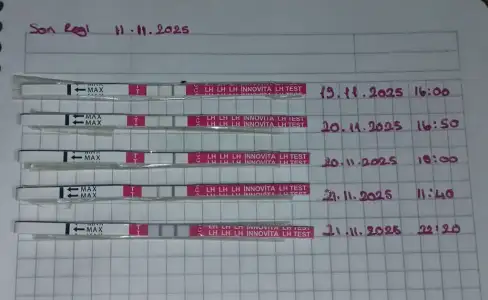 Son Regl 11.11.2025
← MAX T C LH LH LH INNOVITA LH TEST 19.11.2025 16:00
← MAX ← MAX T C LH LH LH INNOVITA LH TEST 20.11.2025 16:50
← MAX T C LH LH LH INNOVITA LH TEST 20.11.2025 18:00
← MAX ← MAX T C LH LH LH INNOVITA LH TEST 21.11.2025 11:40
← MAX T C LH LH LH INNOVITA LH TEST 21.11.2025 22:20